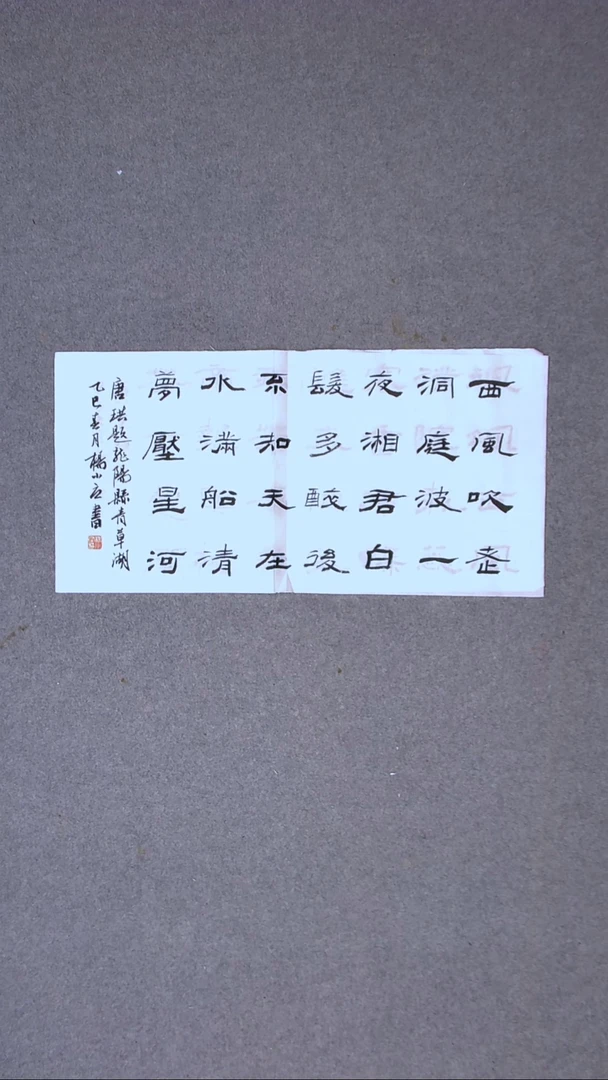 西風吹老
洞庭波一
夜湘君白
髮多醉後
不知天在
水滿船清
夢壓星河
唐珙題龍陽縣青草湖
乙巳春月楊小書